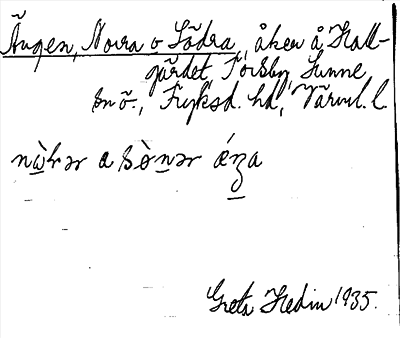 Ängen, Norra o Södra, åker å Hall-
gärdet, Torsby, Sunne
sn ö., Fryksd. hd, Värml. l.
nὼ̲rər a sò̲n̲ər ǽn̲z̲a
Greta Hedin 1935.